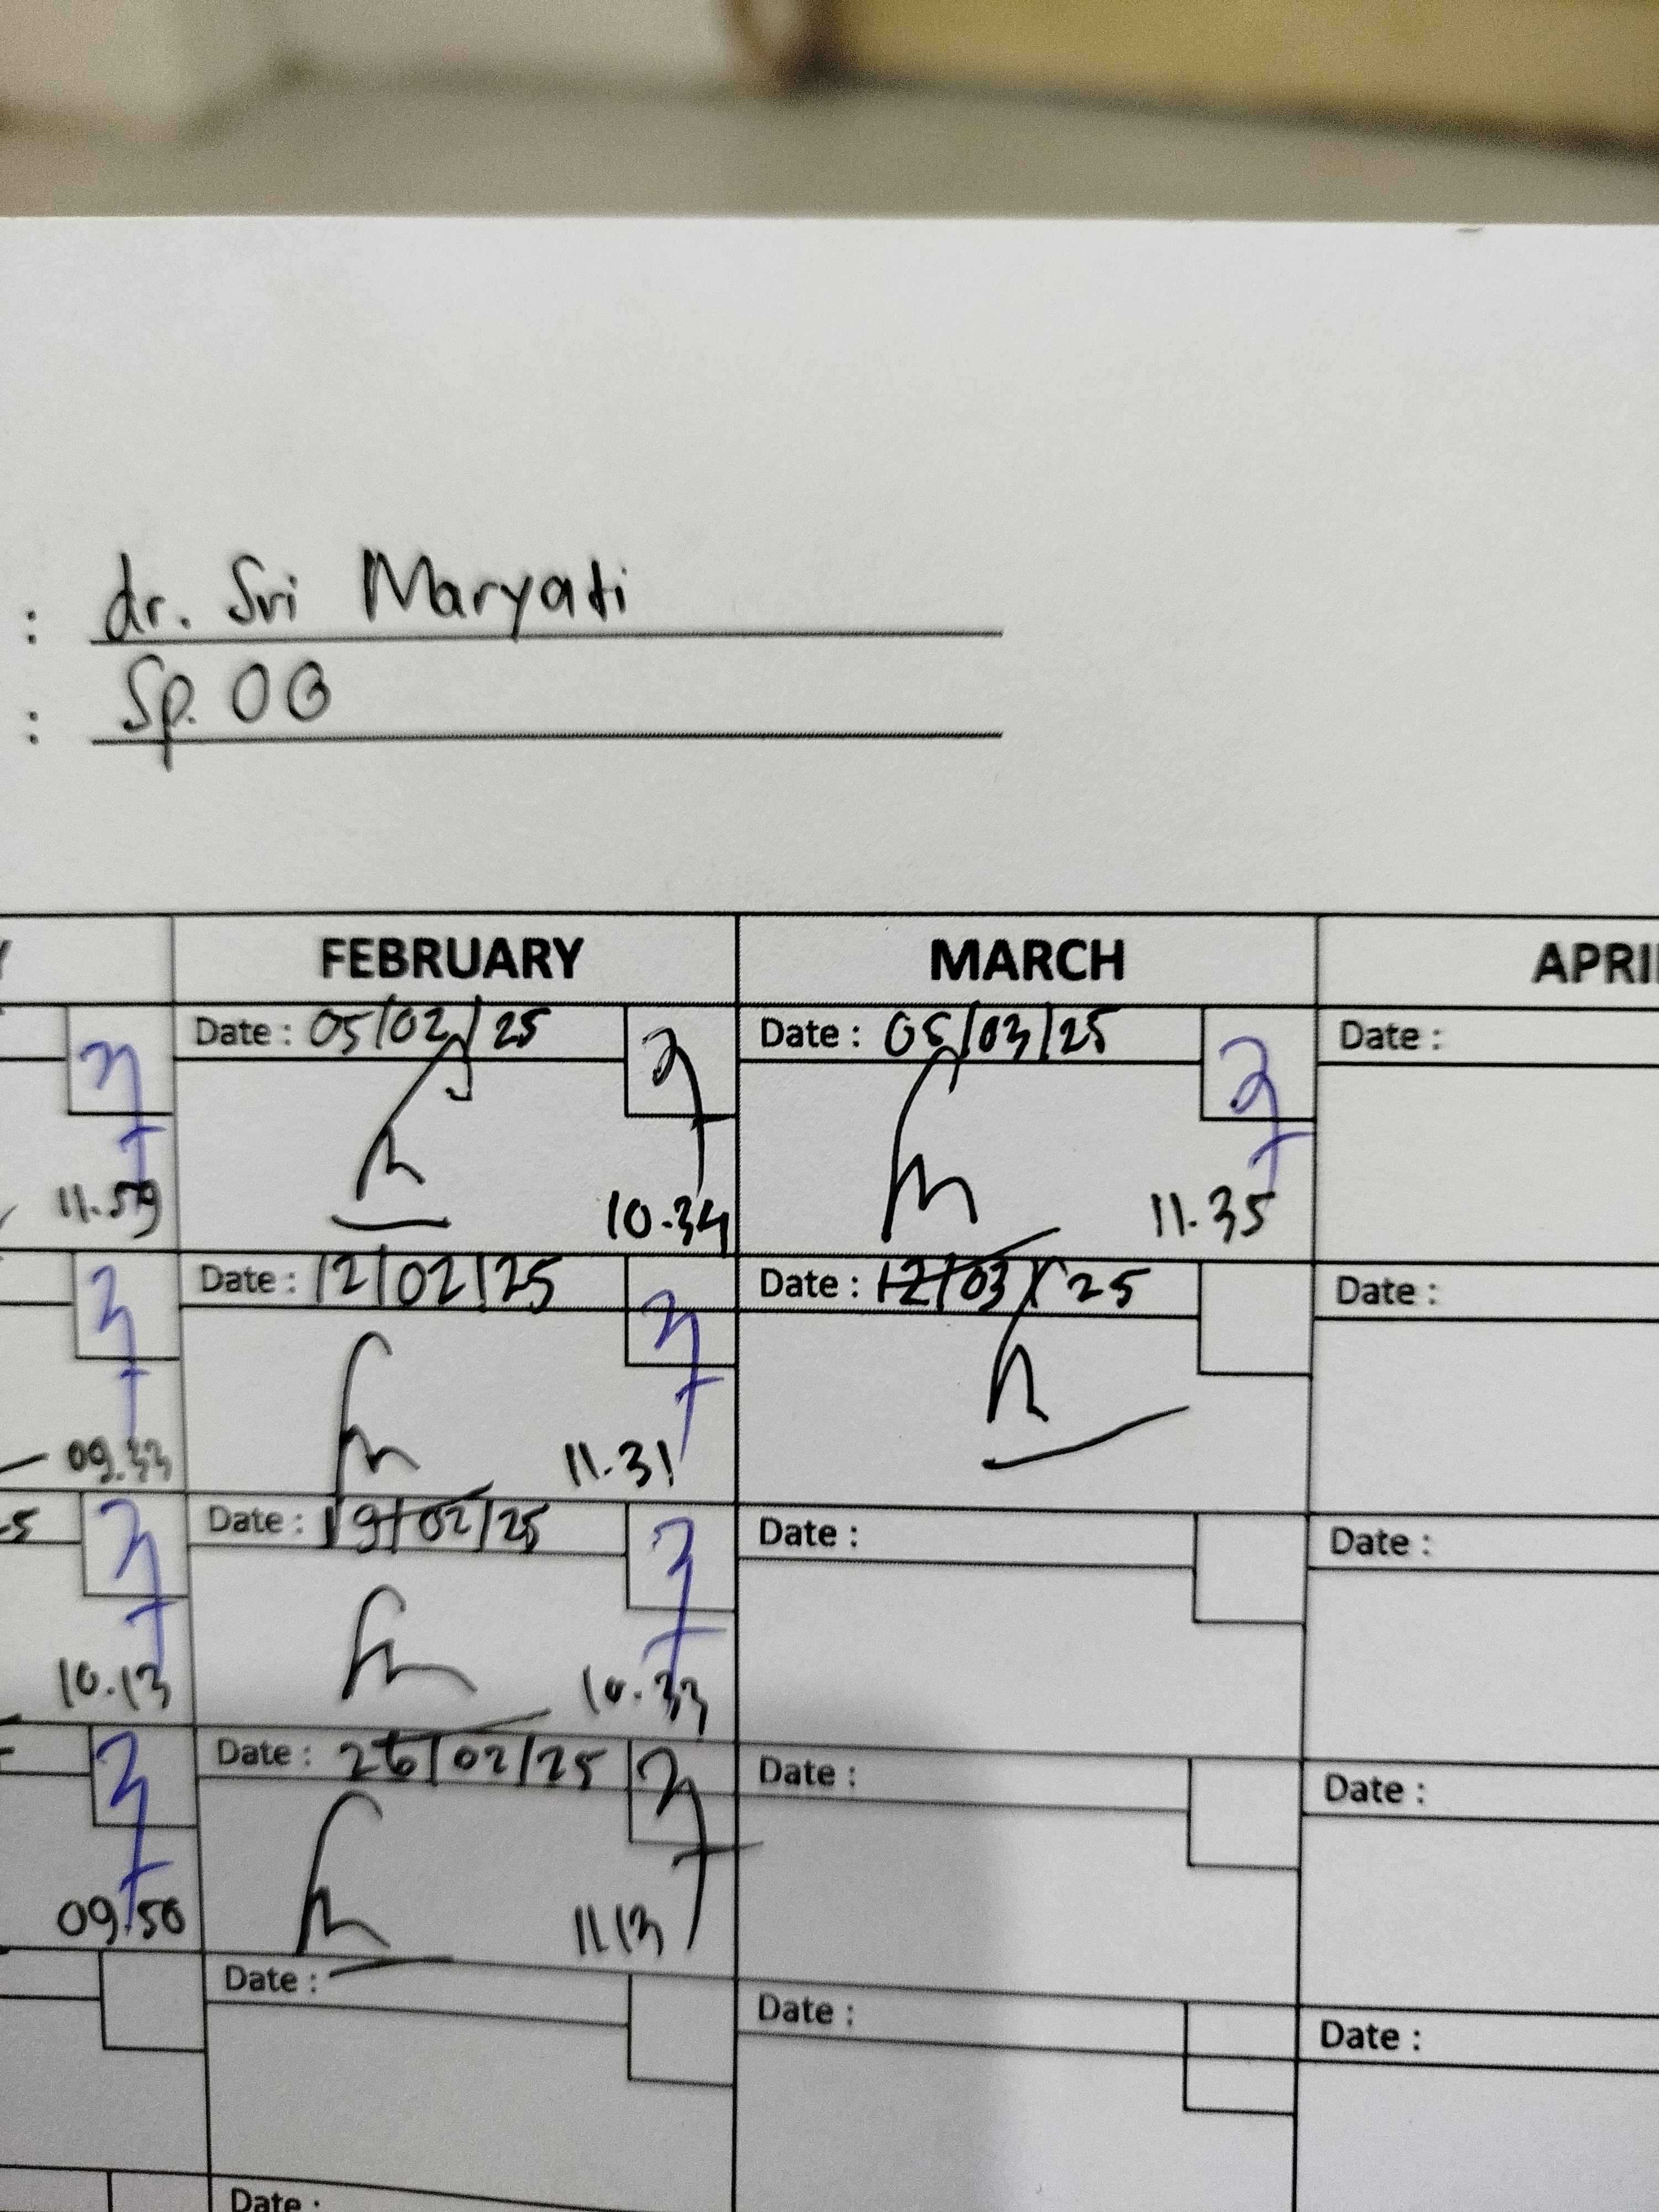 : dr. Sri Maryati
: Sp. OG
FEBRUARY MARCH
Date : 05/02/25 Date : 05/03/25 Date :
11.59 10.34 11.35
Date : 12/02/25 Date : 12/03/25 Date :
09.33 11.31
Date : 19/02/25 Date : Date :
10.13 10.33
Date : 26/02/25 Date : Date :
09.50 11 13
Date : Date : Date :
Date :